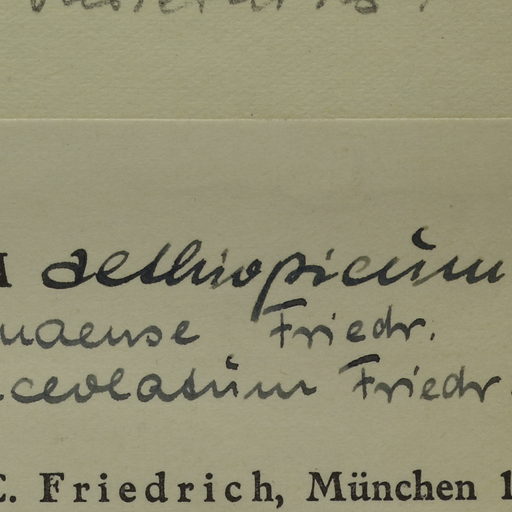 aethiopicum
naense Friedr.
ceolatum Friedr.
C. Friedrich, München 1